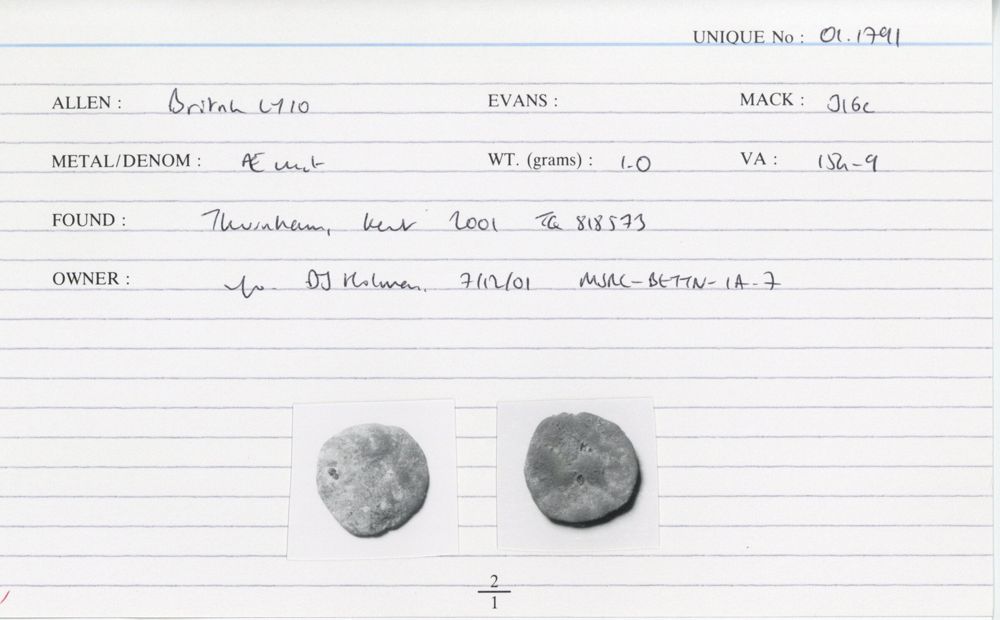 UNIQUE No : 01.1791
ALLEN : British LY10 EVANS : MACK : 316c
METAL/DENOM : Æ unit WT. (grams) : 1.0 VA : 154-9
FOUND : Thurnham, Kent 2001 TQ 818573
OWNER : DJ Holman, 7/12/01 MSRC-BETTN-IA-7
2
1